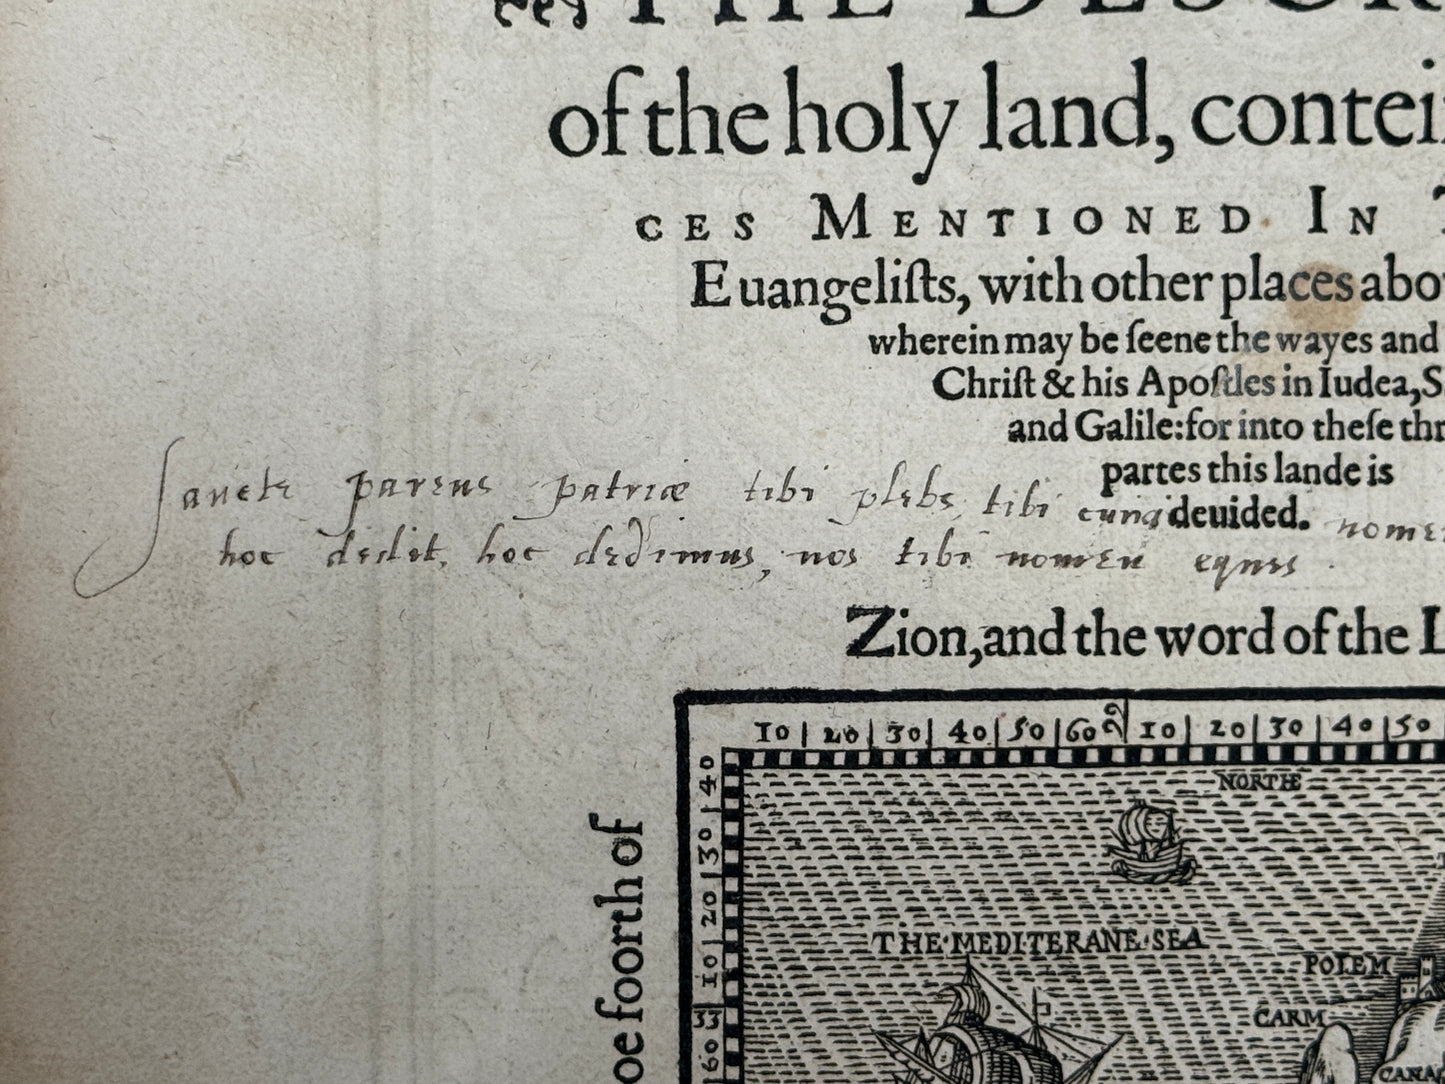 THE DESCR
of the holy land, contein
CES MENTIONED IN T
Euangeliſts, with other places abo
wherein may be ſeene the wayes and
Chriſt & his Apoſtles in Iudea, S
and Galile: for into theſe thr
partes this lande is
deuided.
Sancte parens patriæ tibi plebs, tibi curia nomen
hoc dedit, hoc dedimus, nos tibi nomen eques.
Zion, and the word of the L
10 20 30 40 50 60 10 20 30 40 50
40 30 20 10 33 60
NORTH
THE·MEDITERANE·SEA
POLEM
CARM
CANA
oe foorth of